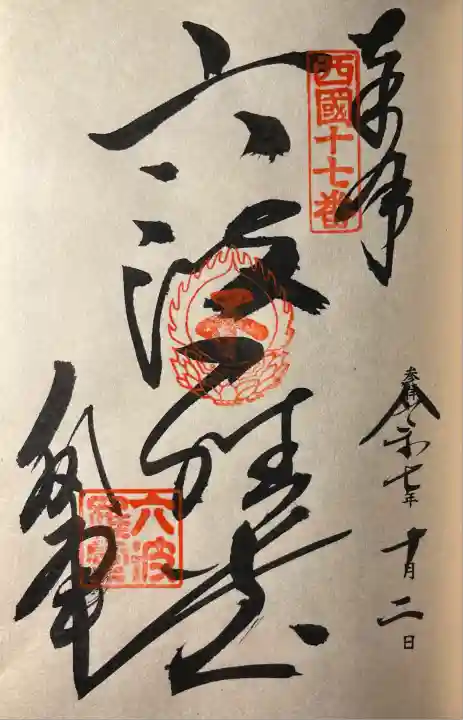 奉拝
西國十七番
参拝
令和七年十月二日
六波羅堂
六波羅堂